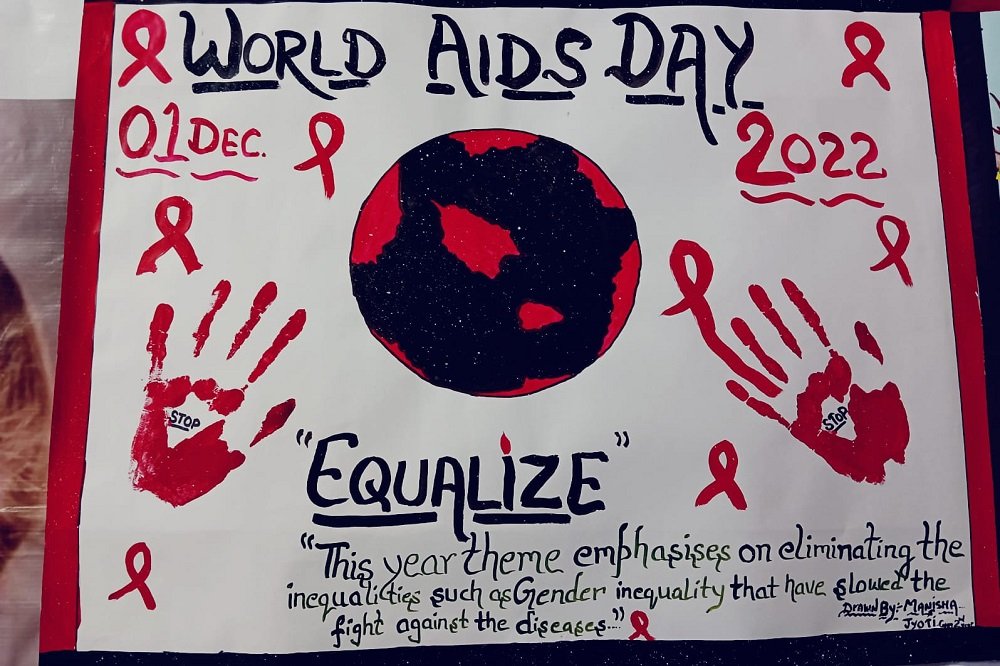 WORLD AIDS DAY
01 DEC.
2022
STOP
STOP
"EQUALIZE"
"This year theme emphasises on eliminating the
inequalities such as Gender inequality that have slowed the
fight against the diseases."
DRAWN By:- MANISHA
JYOTI